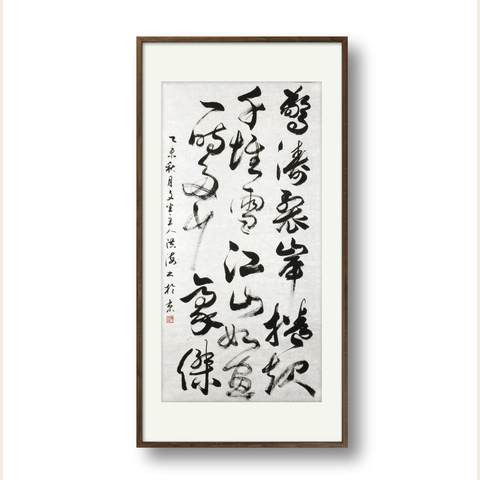 驚濤裂岸捲起
千堆雪江山如畫
一時多少豪傑
乙未秋月文堂主人洪海書於京